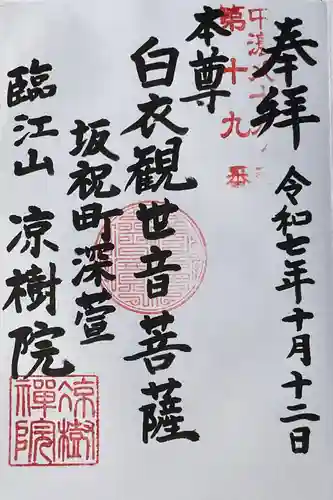 奉拝
令和七年十月十二日
中濃八十八
第十九番
本尊
白衣観世音菩薩
坂祝町深萱
臨江山
凉樹院
凉樹
禅院